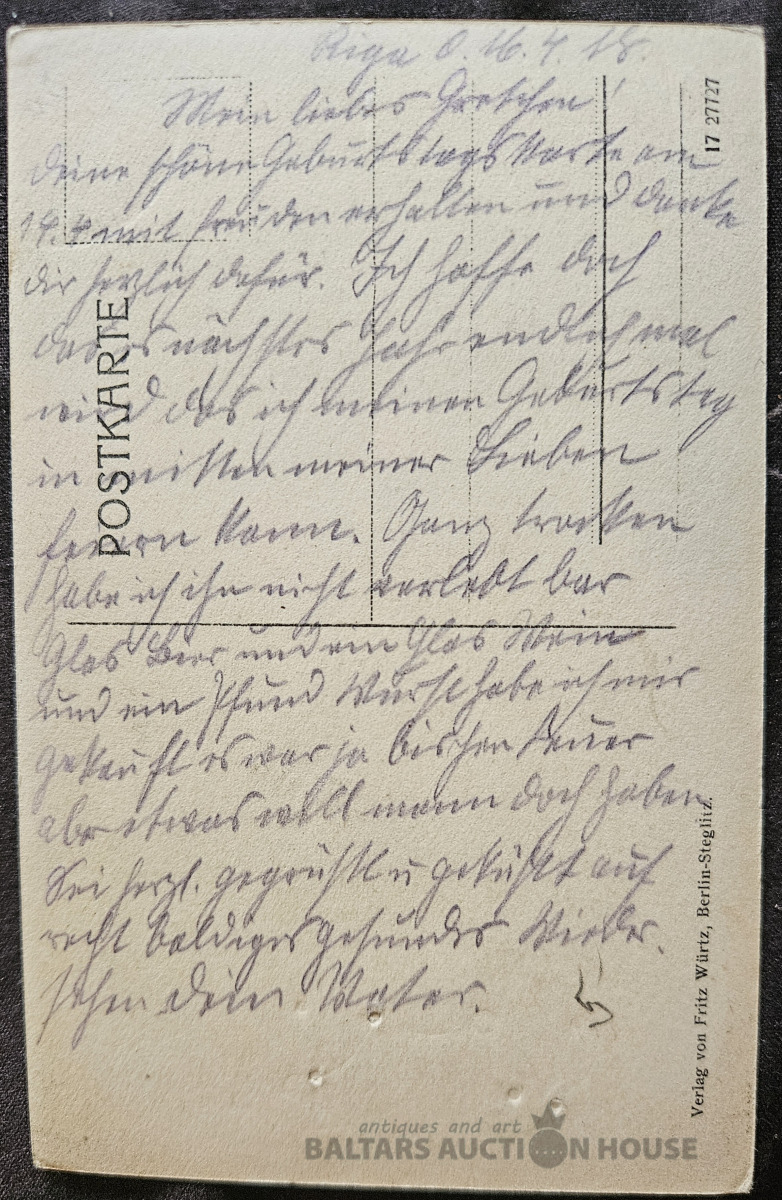 Riga d. 16.4.18.
Mein liebes Gretchen!
deine schöne Geburtstags Karte am
14.4 mit freuden erhalten und danke
dir herzlich dafür. Ich hoffe doch
das es nächstes Jahr endlich mal
wird das ich meinen Geburtstag
in mitten meiner Lieben
feiern kann. Ganz trocken
habe ich ihn nicht verlebt
Glas Bier und ein Glas Wein
und ein Pfund Wurst habe ich mir
gekauft es war ja bischen teuer
aber etwas will mann doch haben
Sei herzl. gegrüßt u geküßt auf
recht baldiges gesundes Wieder.
sehen dein Vater.
POSTKARTE
17 27727
Verlag von Fritz Würtz, Berlin-Steglitz.
antiques and art
BALTARS AUCTION HOUSE